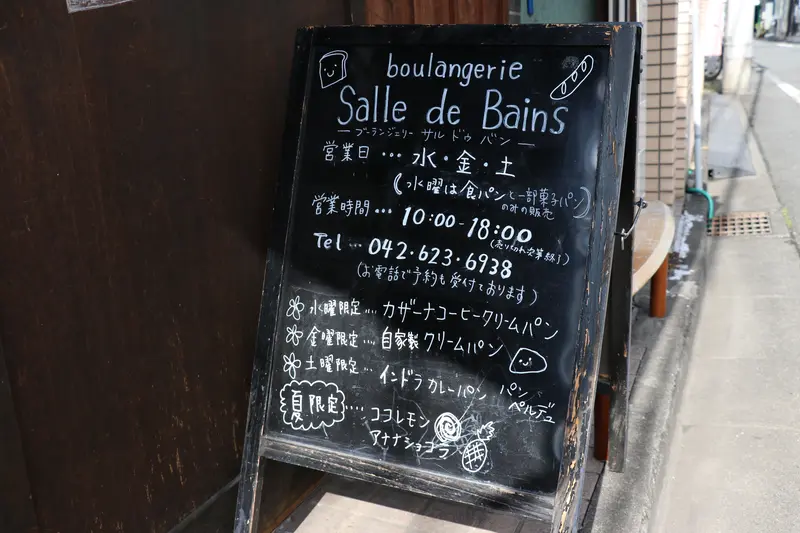 boulangerie
Salle de Bains
ー ブーランジェリー サル ドゥ バン ー
営業日 … 水・金・土
(水曜は食パンと一部菓子パン)
のみの販売
営業時間 … 10:00-18:00
(売り切れ次第終了)
Tel … 042・623・6938
(お電話で予約も受付ております)
水曜限定 … カザーナコーヒークリームパン
金曜限定 … 自家製クリームパン
土曜限定 … インドラカレーパン パン
ペルデュ
夏限定 … ココレモン
アナナショコラ